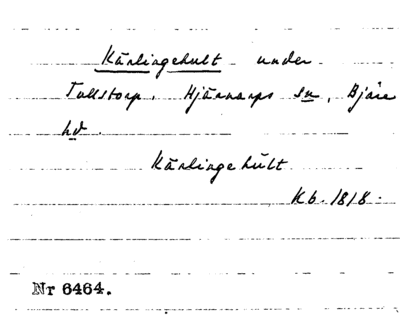 Kärlingehult under
Tullstorp, Hjärnarps sn, Bjäre
hd.
Kärlingehult
Kb. 1818.
Nr 6464.